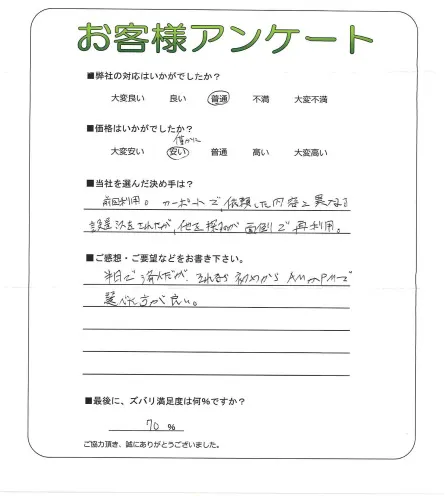 お客様アンケート
■弊社の対応はいかがでしたか?
大変良い 良い 普通 不満 大変不満
■価格はいかがでしたか?
僅かに
大変安い 安い 普通 高い 大変高い
■当社を選んだ決め手は?
前回利用。カーポートで、依頼した内容と異なる
設置決をされたが、他を探すのが面倒で再利用。
■ご感想・ご要望などをお書き下さい。
半日で済んだが、それなら初めからAMかPMで
選べた方が良い。
■最後に、ズバリ満足度は何%ですか?
70 %
ご協力頂き、誠にありがとうございました。